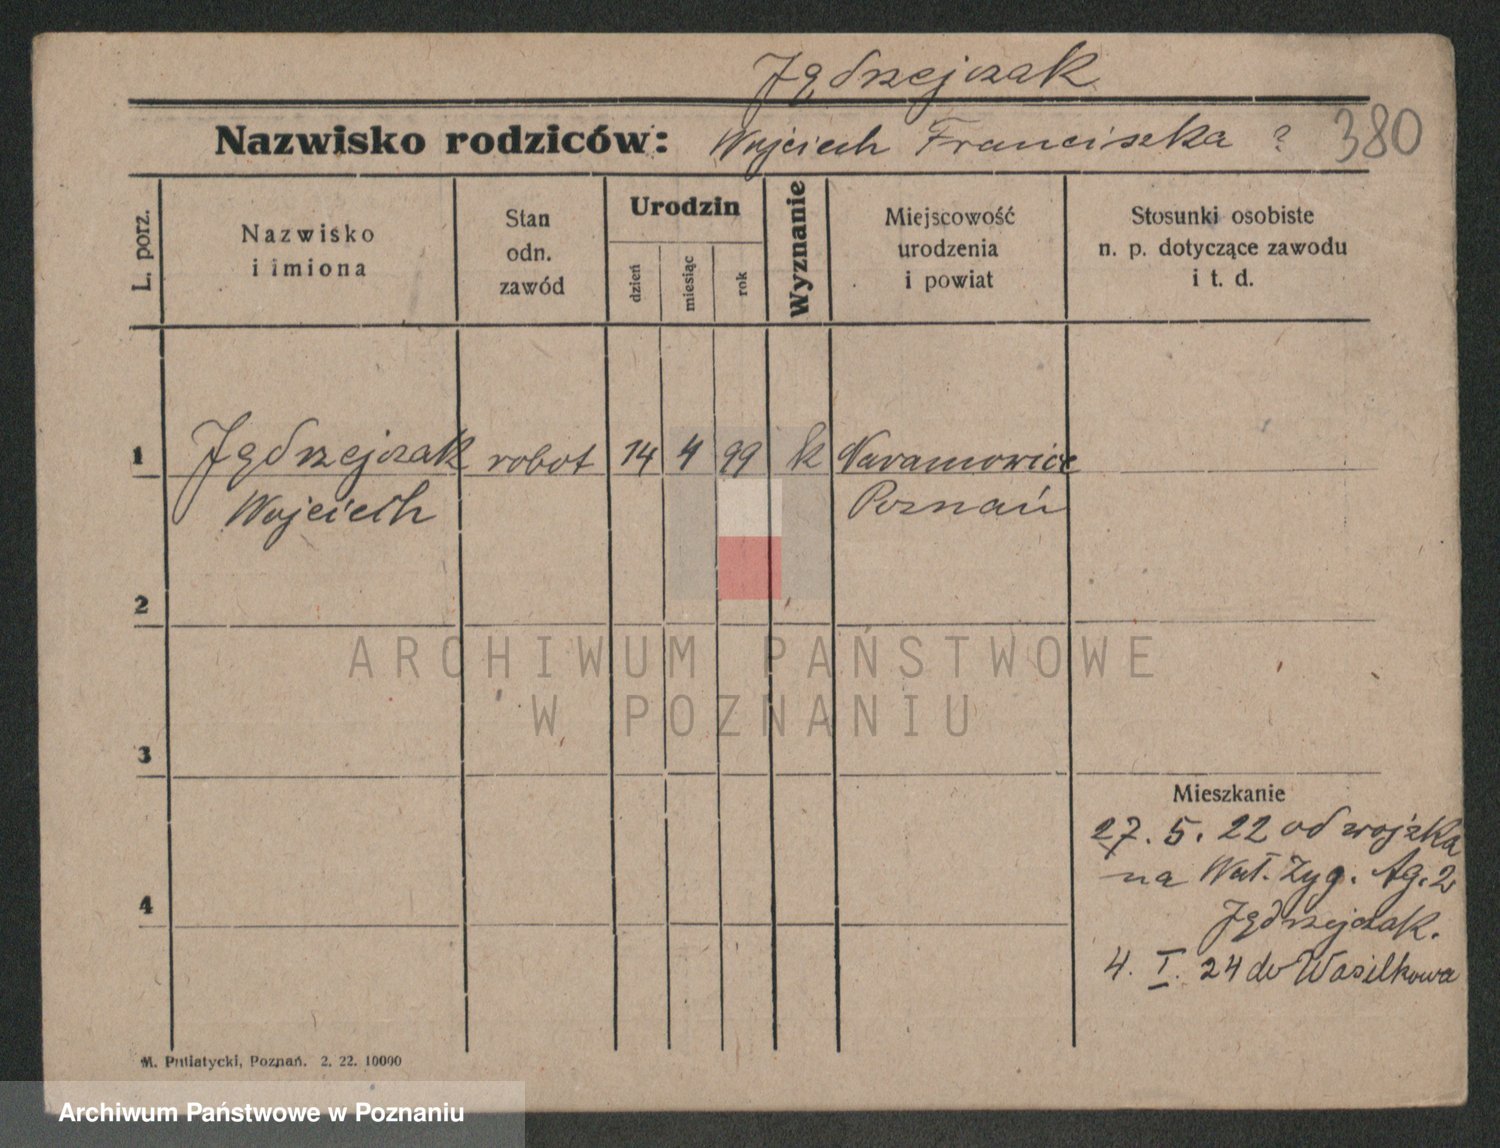 Jędrzejczak
Nazwisko rodziców: Wojciech Franciszka ? 380
L. porz.
Nazwisko
i imiona
Stan
odn.
zawód
Urodzin
dzień
miesiąc
rok
Wyznanie
Miejscowość
urodzenia
i powiat
Stosunki osobiste
n. p. dotyczące zawodu
i t. d.
1 Jędrzejczak robot 14 4 99 k Naramowice
Wojciech Poznań
2
ARCHIWUM PAŃSTWOWE
W POZNANIU
3
Mieszkanie
27. 5. 22 od wojska
na Wał. Zyg. Ag. 2
4
Jędrzejczak.
4. I. 24 do Wasilkowa
M. Putiatycki, Poznań. 2. 22. 10000
Archiwum Państwowe w Poznaniu